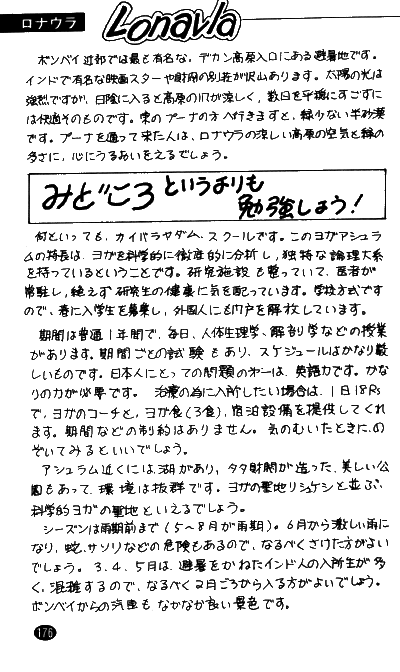 ロナウラ Lonavla
ボンベイ近郊では最も有名な、デカン高原入口にある避暑地です。
インドで有名な映画スターや財閥の別荘が沢山あります。太陽の光は
強烈ですが、日陰に入ると高原の風が涼しく、数日を平穏にすごすに
は快適そのものです。東のプーナの方へ行きますと、緑少ない半砂漠
です。プーナを通って来た人は、ロナウラの涼しい高原の空気と緑の
多さに、心にうるおいをえるでしょう。
みどころというよりも
勉強しよう!
何といっても、カイバラヤダム・スクールです。このヨガアシュラ
ムの特長は、ヨガを科学的に徹底的に分析し、独特な論理大系
を持っているということです。研究施設も整っていて、医者が
常駐し、絶えず研究生の健康に気を配っています。学校方式です
ので、春に入学生を募集し、外国人にも門戸を解放しています。
期間は普通1年間で、毎日、人体生理学、解剖学などの授業
があります。期間ごとの試験もあり、スケジュールはかなり厳
しいものです。日本人にとっての問題の第一は、英語力です。かな
りの力が必要です。治療の為に入所したい場合は、1日18Rs
で、ヨガのコーチと、ヨガ食(3食)、宿泊設備を提供してくれ
ます。期間などの制約はありません。気のむいたときにの
ぞいてみるといいでしょう。
アシュラム近くには湖があり、タタ財閥が造った、美しい公
園もあって、環境は抜群です。ヨガの聖地リシケシと並ぶ、
科学的ヨガの聖地といえるでしょう。
シーズンは雨期前まで(5〜8月が雨期)。6月から激しい雨に
なり、蛇、サソリなどの危険もあるので、なるべくさけた方がよい
でしょう。3.4.5月は、避暑をかねたインド人の入所生が多
く、混雑するので、なるべく2月ごろから入る方がよいでしょう。
ボンベイからの汽車もなかなか良い景色です。
176